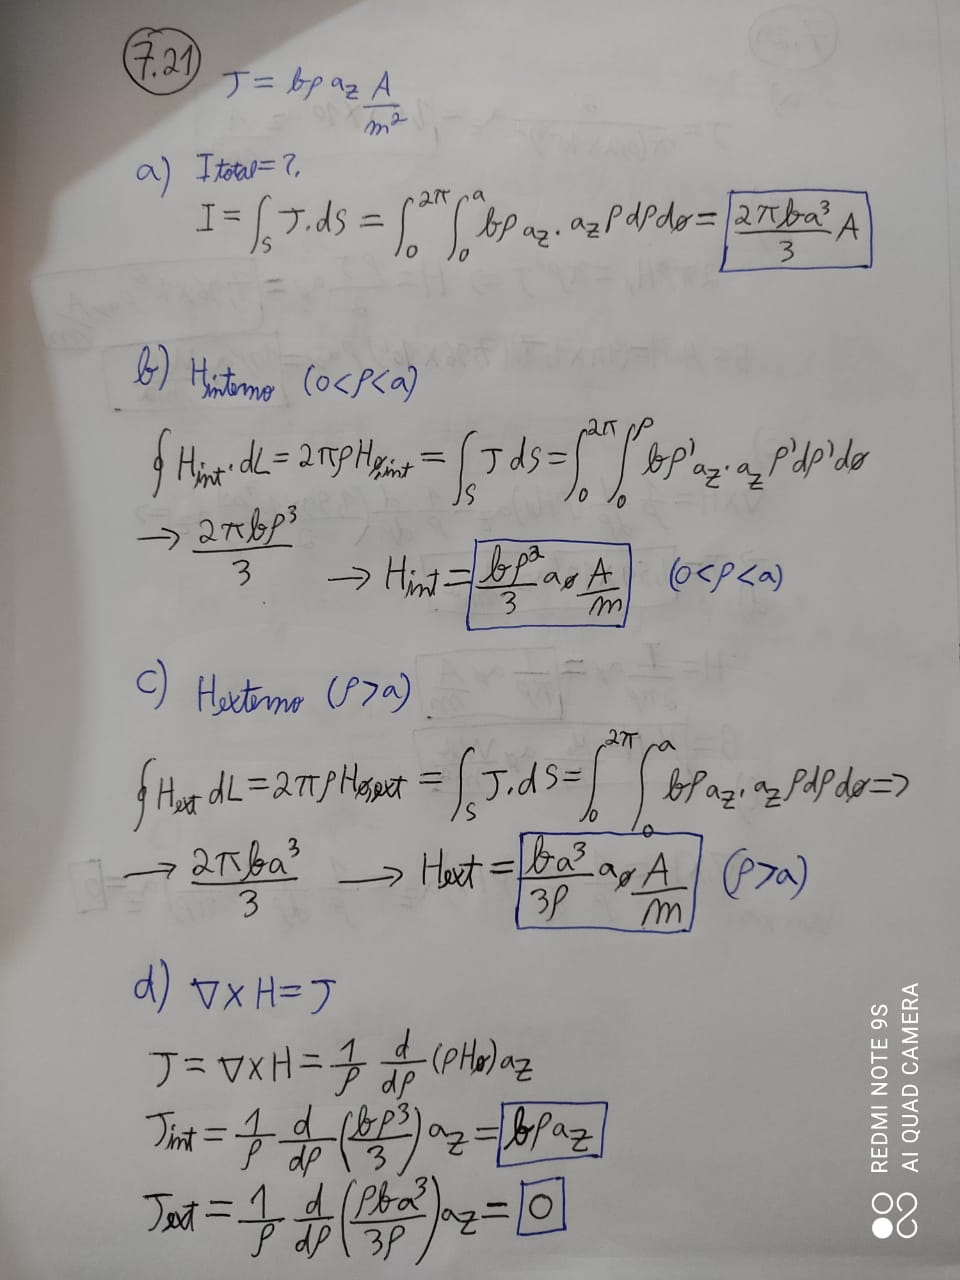 7.21
J = bρ a_z A/m²
a) I total = ?
I = ∫_S J.dS = ∫_0^{2π} ∫_0^a bρ a_z . a_z ρ dρ dø = 2πba³/3 A
b) H interno (0<ρ<a)
∮ H_int . dL = 2πρ H_{ø,int} = ∫_S J dS = ∫_0^{2π} ∫_0^ρ bρ' a_z . a_z ρ'dρ'dø
→ 2πbρ³/3 → H_int = bρ²/3 a_ø A/m (0<ρ<a)
c) H externo (ρ>a)
∮ H_ext dL = 2πρ H_{ø,ext} = ∫_S J.dS = ∫_0^{2π} ∫_0^a bρ a_z . a_z ρ dρ dø =>
→ 2πba³/3 → H_ext = ba³/3ρ a_ø A/m (ρ>a)
d) ∇ x H = J
J = ∇ x H = 1/ρ d/dρ (ρH_ø) a_z
J_int = 1/ρ d/dρ (bρ³/3) a_z = bρ a_z
J_ext = 1/ρ d/dρ (ρba³/3ρ) a_z = 0
REDMI NOTE 9S
AI QUAD CAMERA